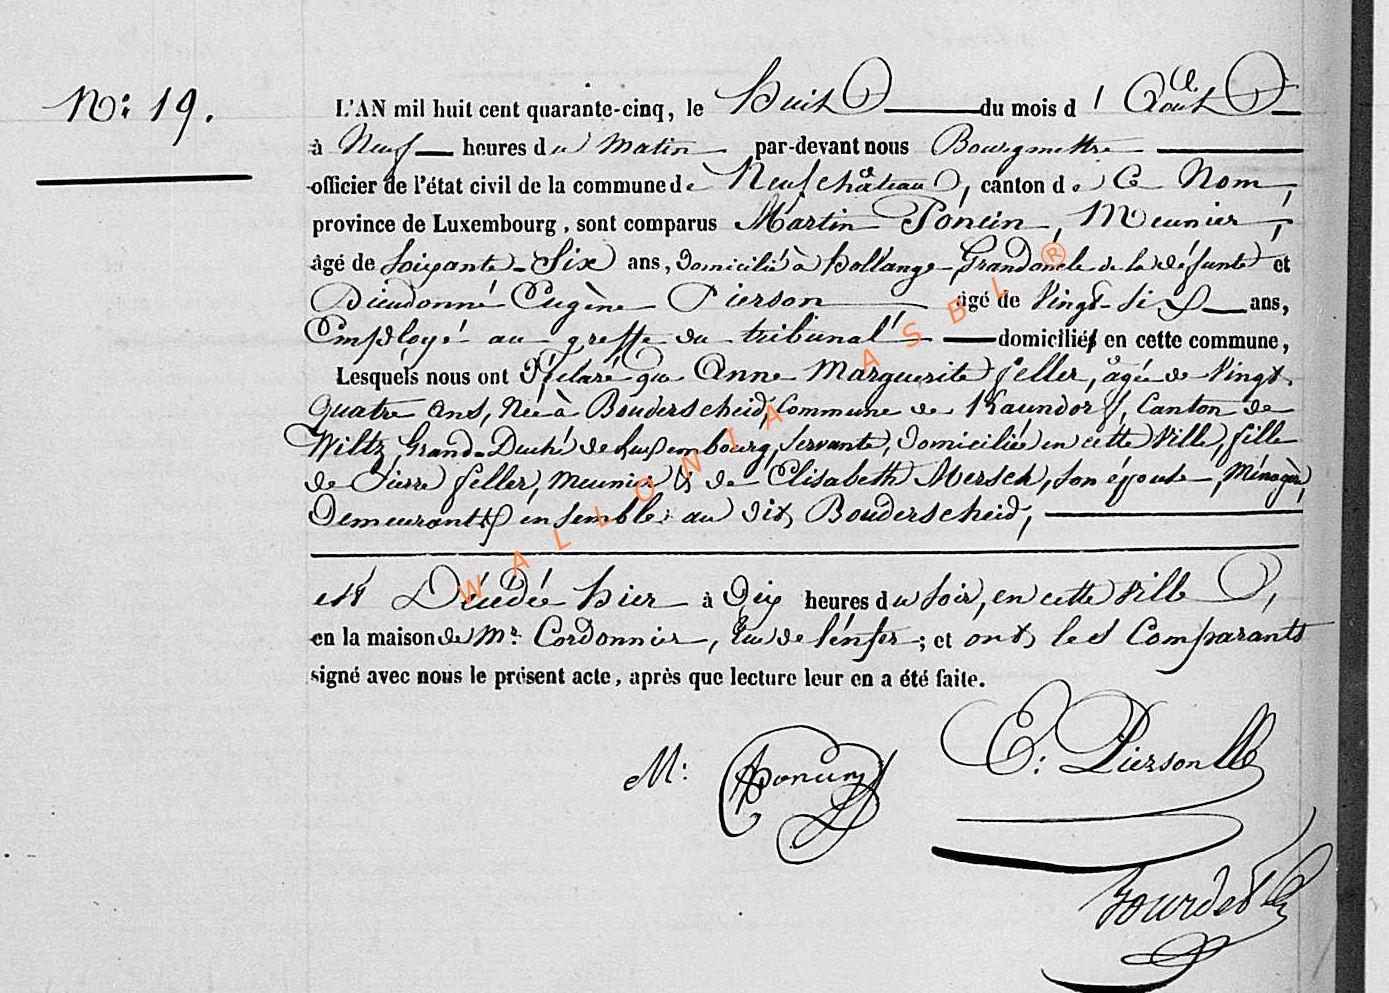 N: 19.
L'AN mil huit cent quarante-cinq, le huit du mois d'Août
à Neuf heures du matin par-devant nous Bourgmettre
officier de l'état civil de la commune de Neufchâteau, canton de Ce Nom,
province de Luxembourg, sont comparus Martin Poncin, Meunier,
âgé de Soixante-Six ans, domicilié à hollange Grandoncle de la défunte et
Dieudonné Eugène Pierson âgé de Vingt-Six ans,
Employé au greffe du tribunal domiciliés en cette commune,
Lesquels nous ont déclaré que Anne Marguerite feller, âgée de Vingt
quatre ans, Née à Bouderscheid, Commune de Kaundorff, Canton de
Wiltz Grand-Duché de Luxembourg, Servante, domiciliée en cette Ville, fille
de Pierre feller, meunier & de Elisabeth Mersch, son épouse, Ménagère,
Demeurants ensemble au dit Bouderscheid,
est Décédée hier à Dix heures du Soir, en cette Ville,
en la maison de Mr Cordonnier, Rue de l'enfer; et ont les Comparants
signé avec nous le présent acte, après que lecture leur en a été faite.
M: Poncin
E: Pierson
Bourdet
WALLONIA ASBL ®